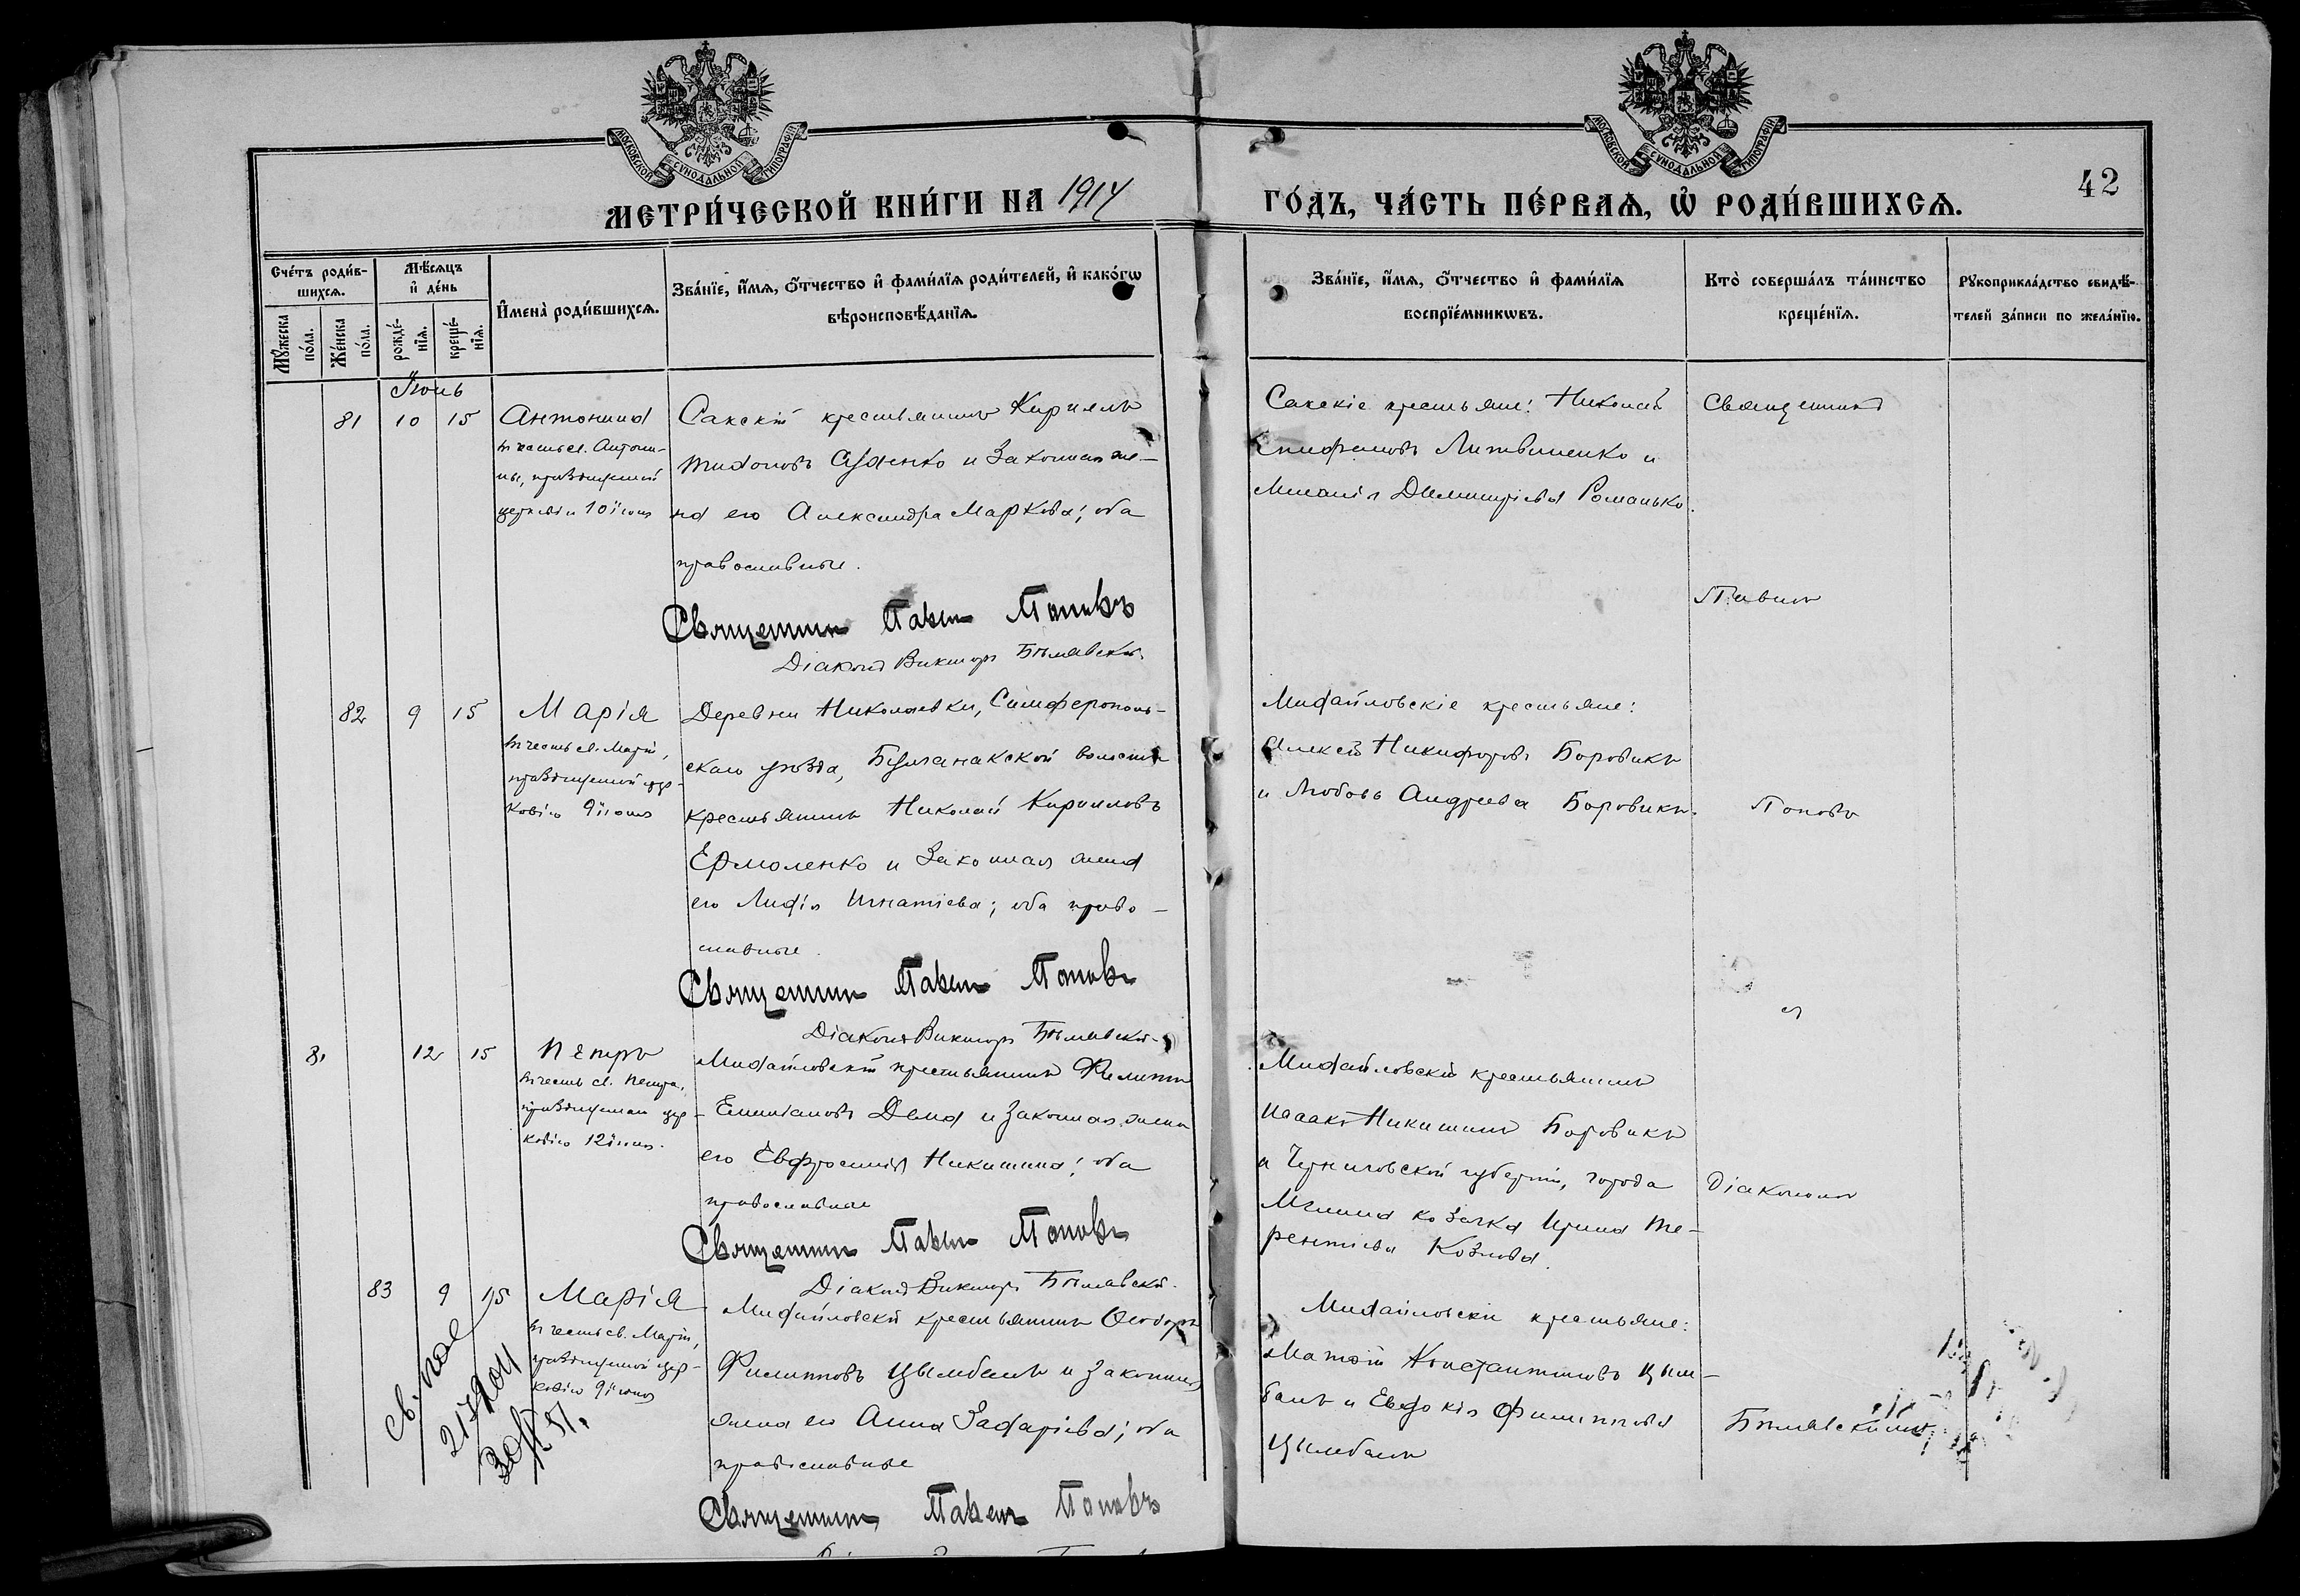 МОСКОВСКОЙ СѴНОДАЛЬНОЙ ТИПОГРАФІИ
МОСКОВСКОЙ СѴНОДАЛЬНОЙ ТИПОГРАФІИ
МЕТРИ́ЧЕСКОЙ КНИ́ГИ НА 1914
ГО́ДЪ, ЧА́СТЬ ПЕ́РВАѦ, Ѡ҆ РОДИ́ВШИХСѦ.
42
Сче́тъ роди́в-
шихсѧ.
Мꙋ́жеска
по́ла.
Же́нска
по́ла.
Мѣ́сѧцъ
и҆ де́нь
рожде́-
нїѧ.
креще́-
нїѧ.
И҆мена̀ роди́вшихсѧ.
Зва́нїе, и҆́мѧ, ѻ҆́тчество и҆ фами́лїѧ роди́телей, и҆ како́гѡ
вѣроисповѣ́данїѧ.
Зва́нїе, и҆́мѧ, ѻ҆́тчество и҆ фами́лїѧ
воспрїе́мникѡвъ.
Кто̀ соверша́лъ та́инство
креще́нїѧ.
Рꙋкоприкла́дство свидѣ́-
телей за́писи по жела́нїю.
Іюнь
81 10 15
Антонина
въ честь св. Антони-
ны, празднуемой
церковію 10 іюня
Сакскій крестьянинъ Кириллъ
Тихоновъ Суденко и законная же-
на его Александра Маркова; оба
православные.
Священникъ Павелъ Поповъ
Діаконъ Викторъ Былавскій.
Сакскіе крестьяне: Николай
Епифановъ Литвиненко и
Меланія Димитріева Романько.
Священникъ
Павелъ
82 9 15
Марія
въ честь св. Маріи,
празднуемой цер-
ковію 9 іюня
Деревни Николаевки, Симферополь-
скаго уѣзда, Булганакской волости
крестьянинъ Николай Кирилловъ
Ермоленко и законная жена
его Лидія Игнатіева; оба право-
славные.
Священникъ Павелъ Поповъ
Діаконъ Викторъ Былавскій.
Михайловскіе крестьяне:
Алексѣй Никифоровъ Боровикъ
и Любовь Андреева Боровикъ.
Поповъ
съ
81 12 15
Петръ
въ честь св. Петра,
празднуемаго цер-
ковію 12 іюня.
Михайловскій крестьянинъ Филиппъ
Емиліановъ Дема и законная жена
его Евфросинія Никитина; оба
православные
Священникъ Павелъ Поповъ
Діаконъ Викторъ Былавскій.
Михайловскій крестьянинъ
Исаакъ Никитинъ Боровикъ
и Черниговской губерніи, города
Мглина козачка Ирина Те-
рентіева Козлова.
Діакономъ
83 9 15
Марія
въ честь св. Маріи,
празднуемой цер-
ковію 9 іюня
Михайловскій крестьянинъ Ѳеодоръ
Филипповъ Цымбалъ и законная
жена его Анна Захаріева; оба
православные
Священникъ Павелъ Поповъ
Михайловскіе крестьяне:
Матѳей Константиновъ Цым-
балъ и Евдокія Филиппова
Цымбалъ
Былавскимъ